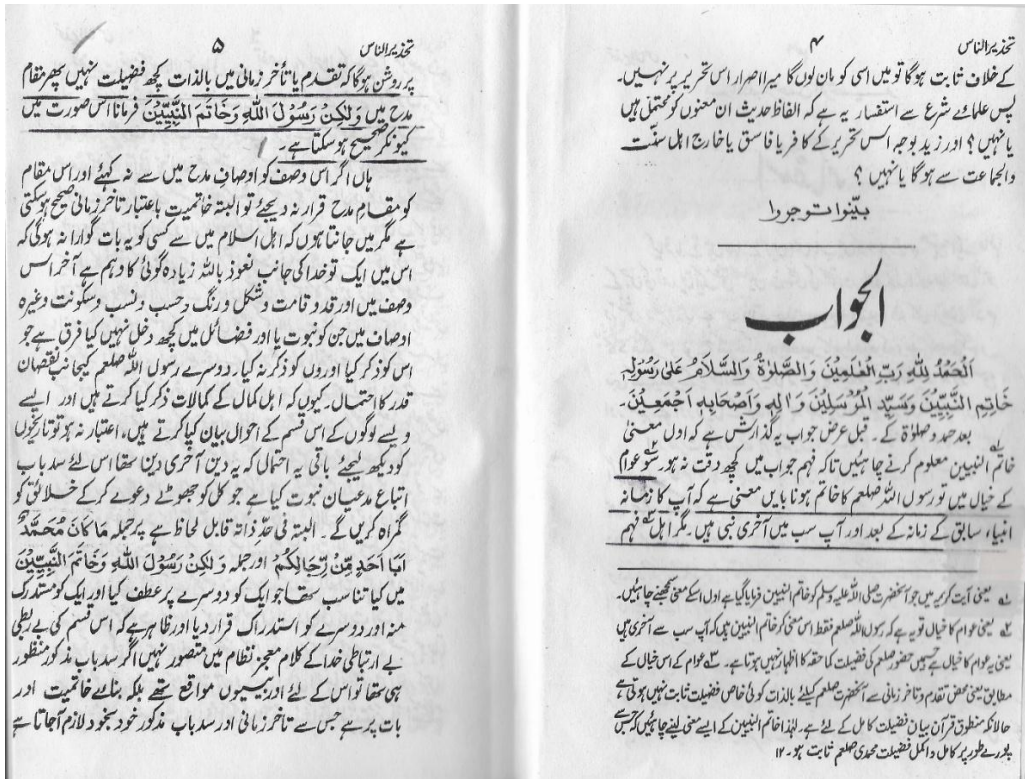 تحذیر الناس
۴
کے خلاف ثابت ہوگا تو میں اسی کو مان لوں گا میرا اصرار اس تحریر پر نہیں۔
پس علمائے شرع سے استفسار یہ ہے کہ الفاظ حدیث ان معنوں کو محتمل ہیں
یا نہیں؟ اور زید بوجہ اس تحریر کے کافر یا فاسق یا خارج اہل سنّت
والجماعت سے ہوگا یا نہیں؟
بیّنوا توجروا
الجواب
اَلْحَمْدُ لِلّٰہِ رَبِّ الْعٰلَمِیْنَ وَالصَّلٰوۃُ وَالسَّلَامُ عَلٰی رَسُوْلِہٖ
خَاتِمِ النَّبِیِّیْنَ وَسَیِّدِ الْمُرْسَلِیْنَ وَاٰلِہٖ وَاَصْحَابِہٖ اَجْمَعِیْنَ۔
بعد حمد و صلوٰۃ کے۔ قبل عرض جواب یہ گذارش ہے کہ اول معنی
خاتم النبیین معلوم کرنے چاہئیں تاکہ فہم جواب میں کچھ دقت نہ ہو۔ سو عوام
کے خیال میں تو رسول اللہ صلعم کا خاتم ہونا بایں معنی ہے کہ آپ کا زمانہ
انبیاء سابق کے زمانہ کے بعد اور آپ سب میں آخری نبی ہیں۔ مگر اہل فہم
۱ یعنی آیت کریمہ میں جو آنحضرت صلی اللہ علیہ وسلم کو خاتم النبیین فرمایا گیا ہے اول اسکے معنی سمجھنے چاہئیں۔
۲ یعنی عوام کا خیال تو یہ ہے کہ رسول اللہ صلعم فقط اس معنی کر خاتم النبیین ہیں کہ آپ سب سے آخری ہیں
یعنی یہ عوام کا خیال ہے جسمیں حضور صلعم کی فضیلت کما حقہ کا اظہار نہیں ہوتا ہے۔ ۳ عوام کے اس خیال کے
مطابق یعنی محض تقدم و تاخر زمانی سے آنحضرت صلعم کیلئے بالذات کوئی خاص فضیلت ثابت نہیں ہوتی ہے
حالانکہ منطوق قرآن بیان فضیلت کامل کے لئے ہے۔ لہٰذا خاتم النبیین کے ایسے معنی لینے چاہئیں کہ جس سے
پورے طور پر کامل و اکمل فضیلت محمدی صلعم ثابت ہو۔ ۱۲
تحذیر الناس
۵
پر روشن ہوگا کہ تقدم یا تأخر زمانی میں بالذات کچھ فضیلت نہیں پھر مقام
مدح میں وَلٰکِنْ رَسُوْلَ اللّٰہِ وَخَاتَمَ النَّبِیِّیْنَ فرمانا اس صورت میں
کیونکر صحیح ہو سکتا ہے۔
ہاں اگر اس وصف کو اوصافِ مدح میں سے نہ کہئے اور اس مقام
کو مقامِ مدح قرار نہ دیجئے تو البتہ خاتمیت باعتبار تاخر زمانی صحیح ہو سکتی
ہے مگر میں جانتا ہوں کہ اہل اسلام میں سے کسی کو یہ بات گوارا نہ ہوگی کہ
اس میں ایک تو خدا کی جانب نعوذ باللہ زیادہ گوئی کا وہم ہے آخر اس
وصف میں اور قد و قامت و شکل و رنگ و حسب و نسب و سکونت وغیرہ
اوصاف میں جن کو نبوت یا اور فضائل میں کچھ دخل نہیں کیا فرق ہے جو
اس کو ذکر کیا اوروں کو ذکر نہ کیا۔ دوسرے رسول اللہ صلعم کیجانب نقصان
قدر کا احتمال۔ کیوں کہ اہل کمال کے کمالات ذکر کیا کرتے ہیں اور ایسے
ویسے لوگوں کے اس قسم کے احوال بیان کیا کرتے ہیں، اعتبار نہ ہو تو تاریخوں
کو دیکھ لیجئے باقی یہ احتمال کہ یہ دین آخری دین تھا اس لئے سد باب
اتباع مدعیان نبوت کیا ہے جو کل کو جھوٹے دعوے کرکے خلائق کو
گمراہ کریں گے۔ البتہ فی حد ذاتہ قابل لحاظ ہے پر جملہ مَا کَانَ مُحَمَّدٌ
اَبَا اَحَدٍ مِّنْ رِّجَالِکُمْ اور جملہ وَلٰکِنْ رَسُوْلَ اللّٰہِ وَخَاتَمَ النَّبِیِّیْنَ
میں کیا تناسب تھا جو ایک کو دوسرے پر عطف کیا اور ایک کو مستدرک
منہ اور دوسرے کو استدراک قرار دیا اور ظاہر ہے کہ اس قسم کی بے ربطی
بے ارتباطی خدا کے کلام معجز نظام میں متصور نہیں اگر سد باب مذکور منظور
ہی تھا تو اس کے لئے اور بیسیوں مواقع تھے بلکہ بنائے خاتمیت اور
بات پر ہے جس سے تاخر زمانی اور سد باب مذکور خود بخود لازم آجاتا ہے